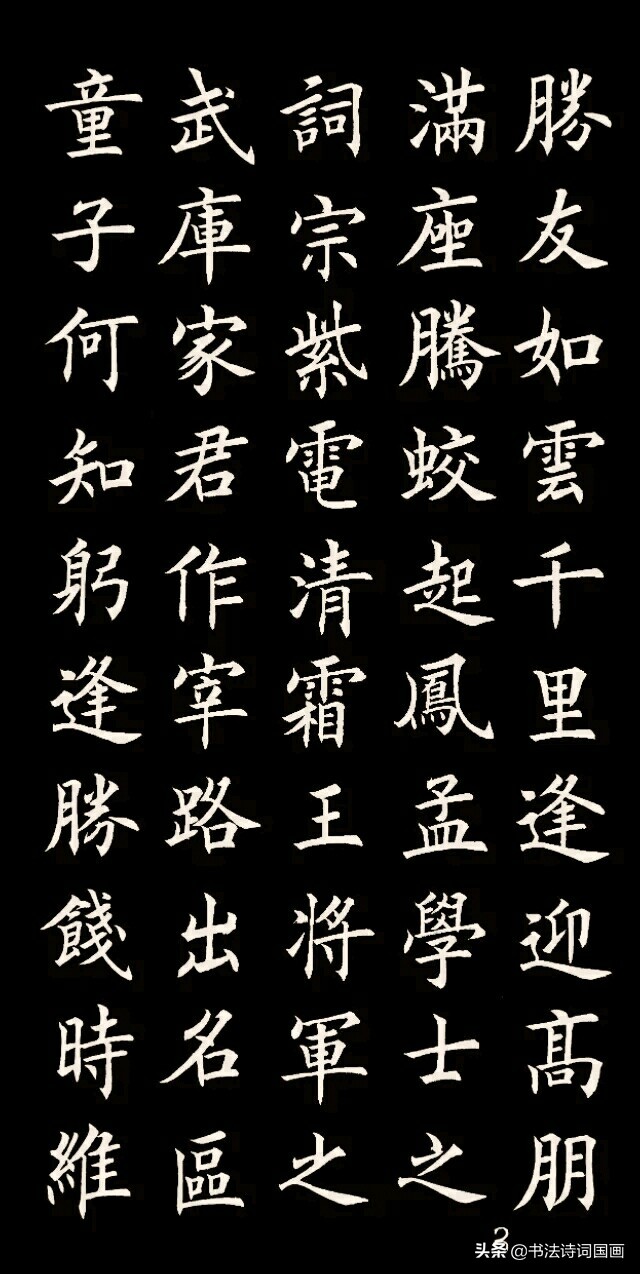 勝友如雲千里逢迎髙朋
滿座騰蛟起鳳孟學士之
詞宗紫電清霜王將軍之
武庫家君作宰路出名區
童子何知躬逢勝餞時維
2
头条 @书法诗词国画